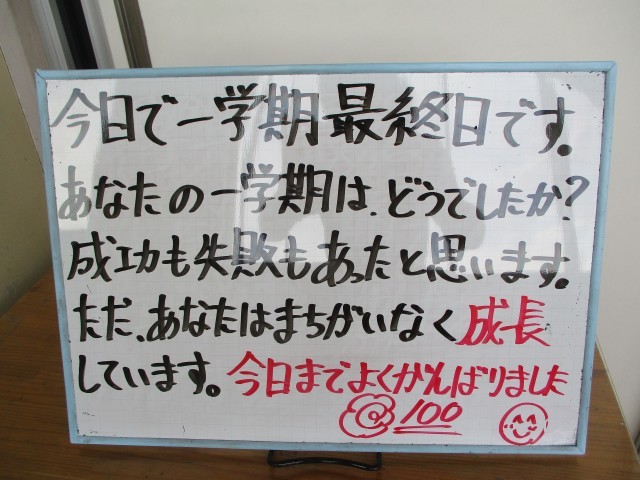 今日で一学期最終日です。
あなたの一学期は、どうでしたか?
成功も失敗もあったと思います。
ただ、あなたはまちがいなく成長
しています。今日までよくがんばりました
100